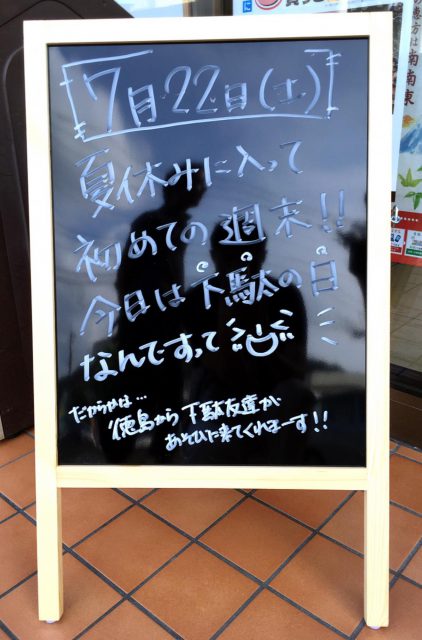 7月22日(土)
夏休みに入って
初めての週末!!
今日は下駄の日
なんですって
徳島から下駄友達が
あそびに来てくれまーす!!
南南東